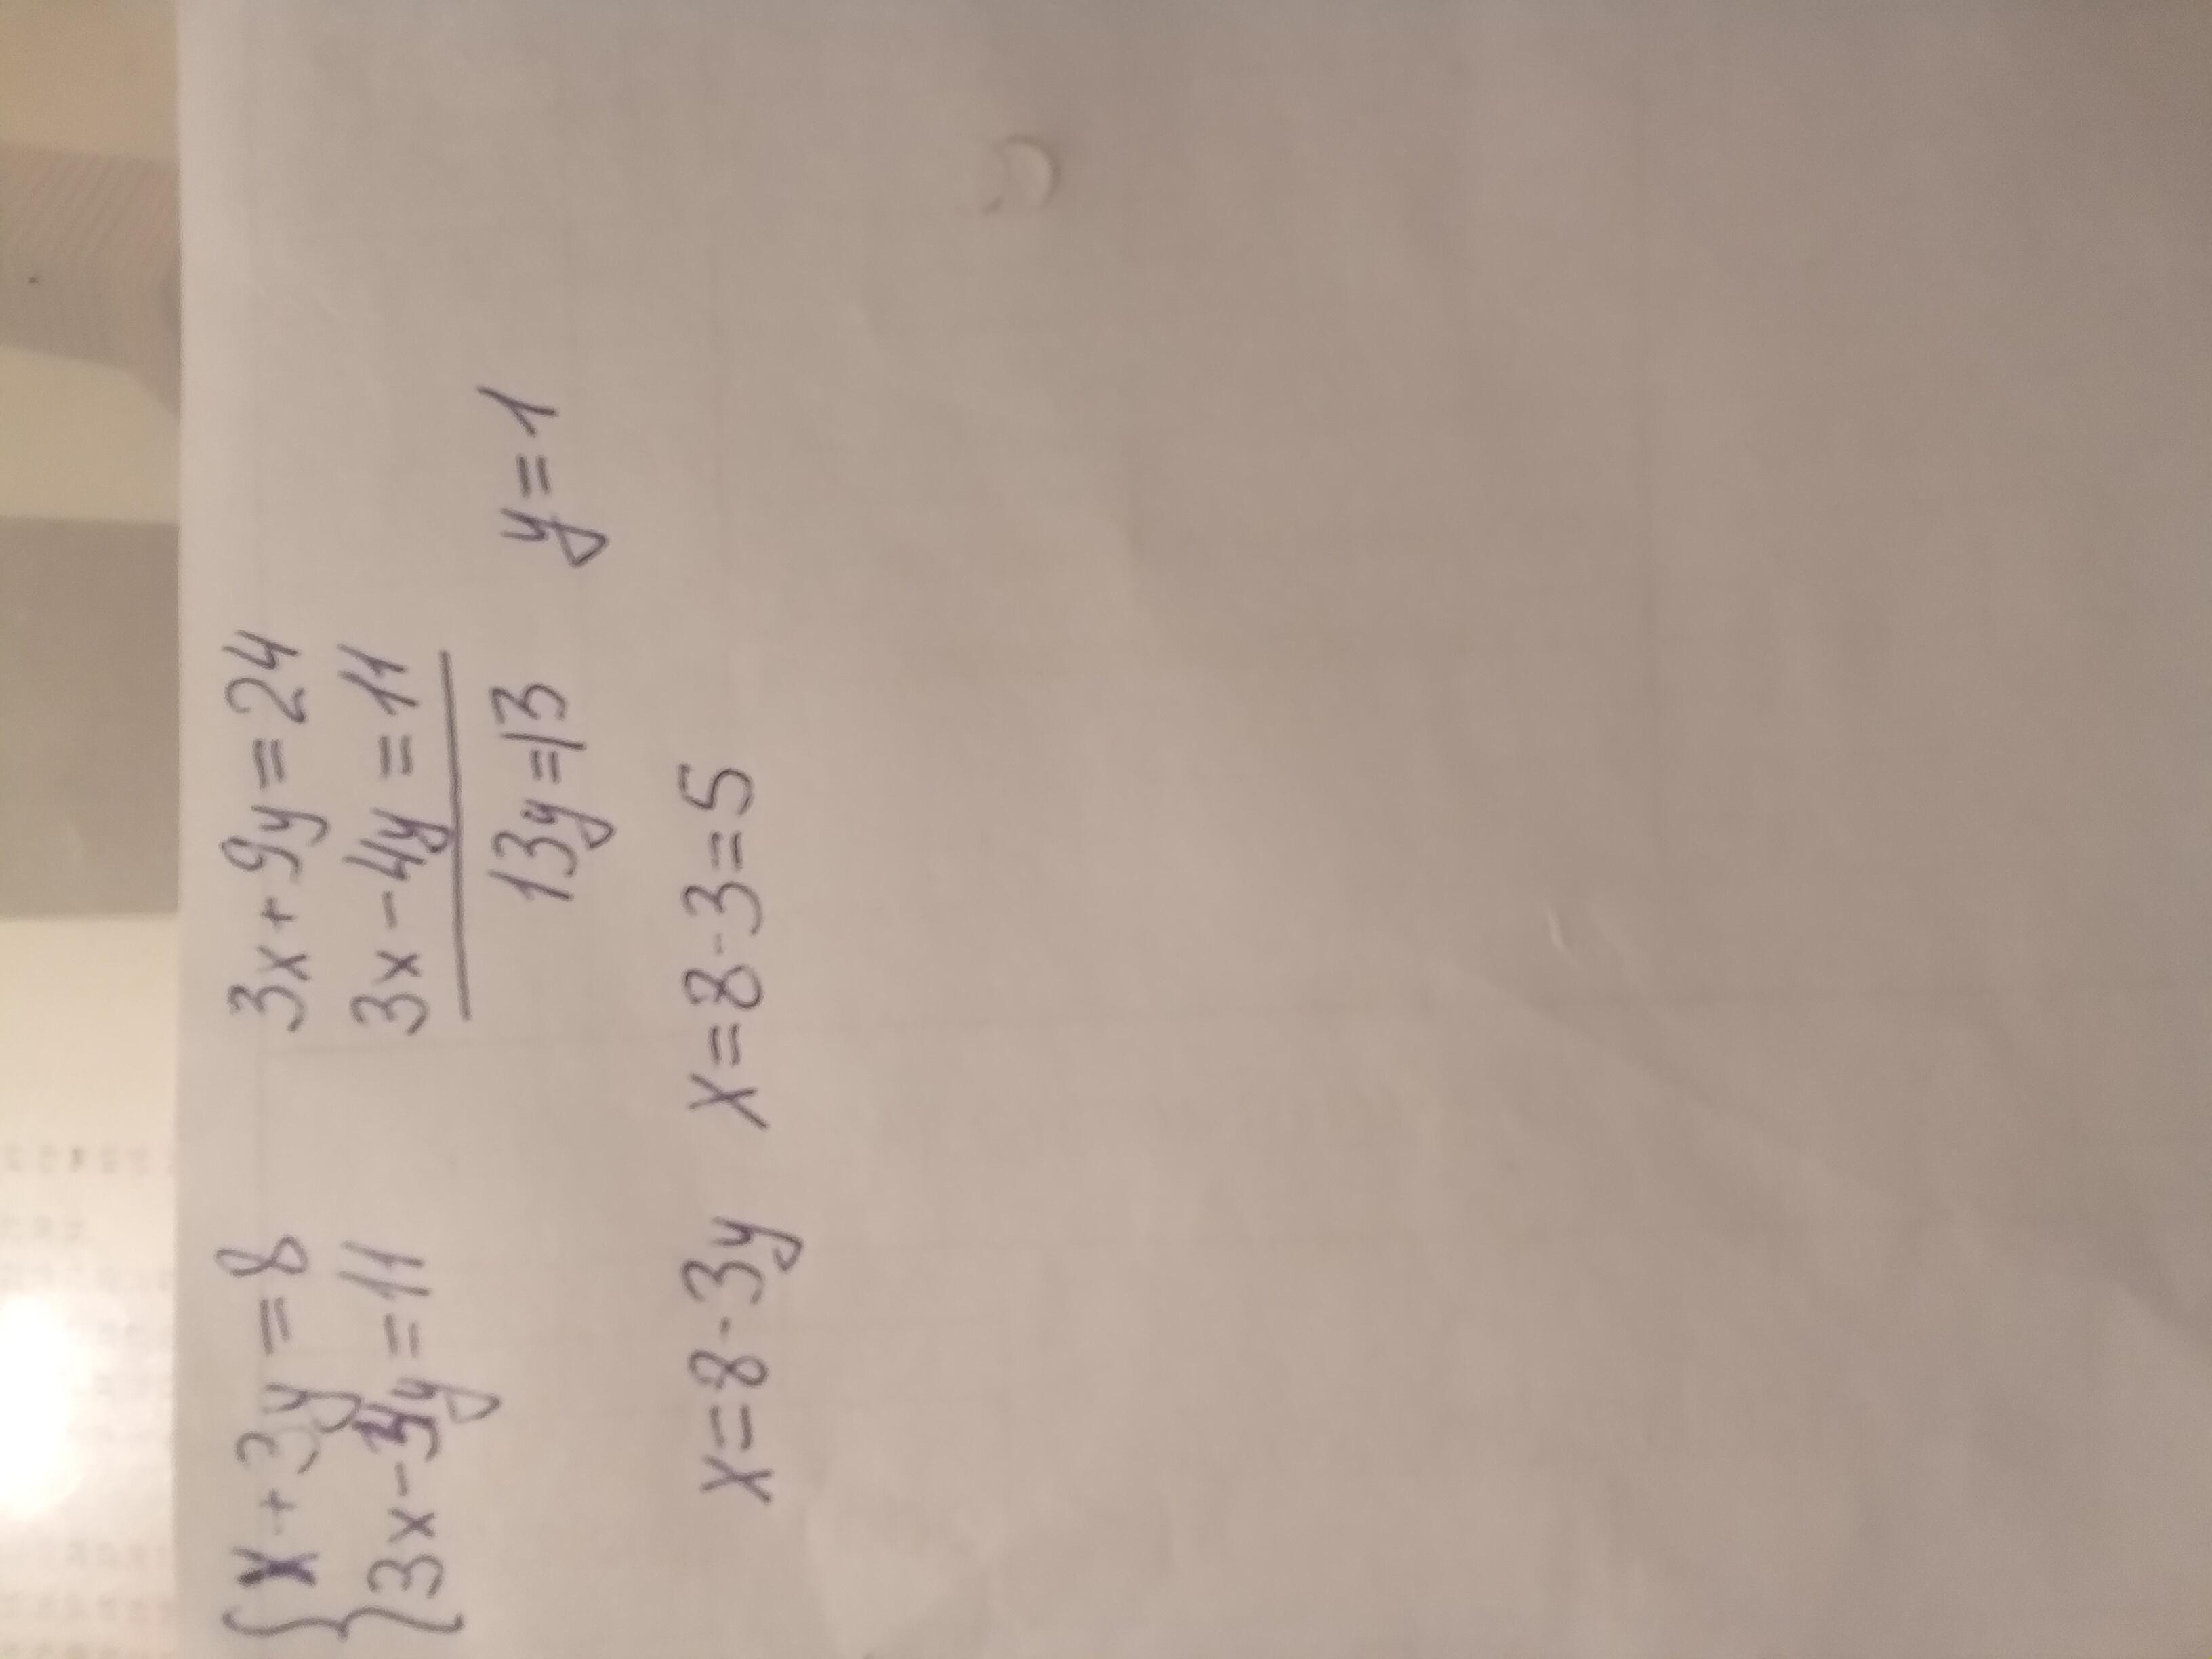 { x + 3y = 8     3x + 9y = 24
{ 3x - 4y = 11     3x - 4y = 11
13y = 13     y = 1
x = 8 - 3y     x = 8 - 3 = 5